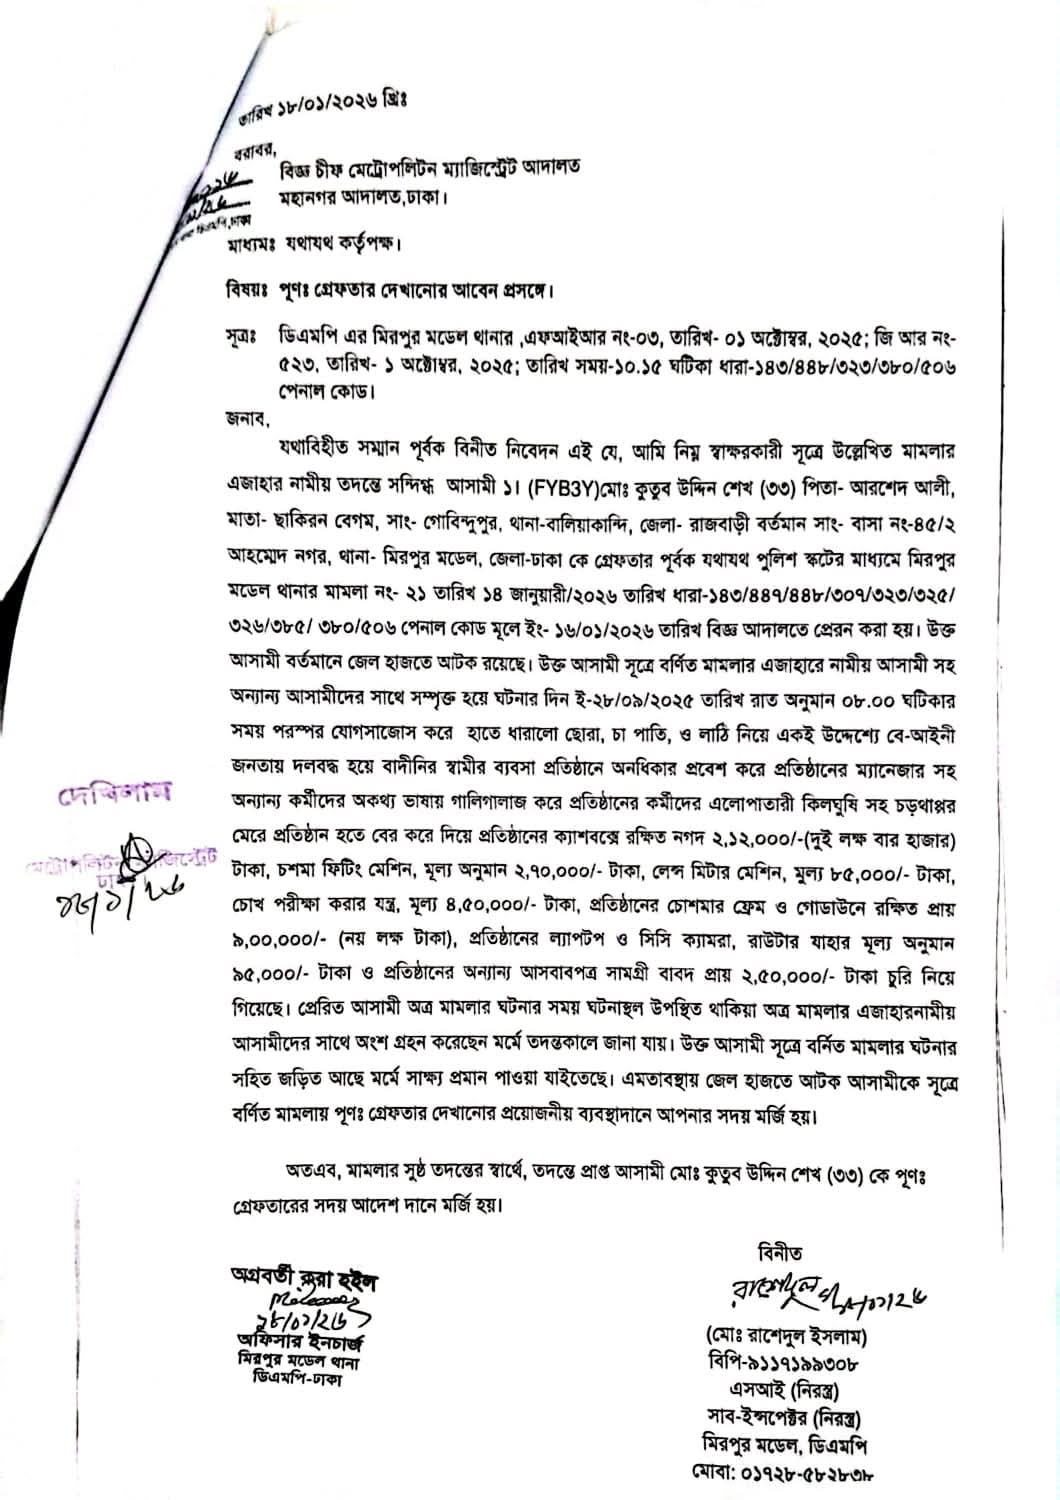 তারিখ ১৮/০১/২০২৬ খ্রিঃ
বরাবর,
বিজ্ঞ চীফ মেট্রোপলিটন ম্যাজিস্ট্রেট আদালত
মহানগর আদালত,ঢাকা।
ডিএমপি,ঢাকা
মাধ্যমঃ যথাযথ কর্তৃপক্ষ।
বিষয়ঃ পূণঃ গ্রেফতার দেখানোর আবেন প্রসঙ্গে।
সূত্রঃ ডিএমপি এর মিরপুর মডেল থানার ,এফআইআর নং-০৩, তারিখ- ০১ অক্টোম্বর, ২০২৫; জি আর নং-
৫২৩, তারিখ- ১ অক্টোম্বর, ২০২৫; তারিখ সময়-১০.১৫ ঘটিকা ধারা-১৪৩/৪৪৮/৩২৩/৩৮০/৫০৬
পেনাল কোড।
জনাব,
যথাবিহীত সম্মান পূর্বক বিনীত নিবেদন এই যে, আমি নিম্ন স্বাক্ষরকারী সূত্রে উল্লেখিত মামলার
এজাহার নামীয় তদন্তে সন্দিগ্ধ আসামী ১। (FYB3Y)মোঃ কুতুব উদ্দিন শেখ (৩৩) পিতা- আরশেদ আলী,
মাতা- ছাকিরন বেগম, সাং- গোবিন্দুপুর, থানা-বালিয়াকান্দি, জেলা- রাজবাড়ী বর্তমান সাং- বাসা নং-৪৫/২
আহম্মেদ নগর, থানা- মিরপুর মডেল, জেলা-ঢাকা কে গ্রেফতার পূর্বক যথাযথ পুলিশ স্কটের মাধ্যমে মিরপুর
মডেল থানার মামলা নং- ২১ তারিখ ১৪ জানুয়ারী/২০২৬ তারিখ ধারা-১৪৩/৪৪৭/৪৪৮/৩০৭/৩২৩/৩২৫/
৩২৬/৩৮৫/ ৩৮০/৫০৬ পেনাল কোড মূলে ইং- ১৬/০১/২০২৬ তারিখ বিজ্ঞ আদালতে প্রেরন করা হয়। উক্ত
আসামী বর্তমানে জেল হাজতে আটক রয়েছে। উক্ত আসামী সূত্রে বর্ণিত মামলার এজাহারে নামীয় আসামী সহ
অন্যান্য আসামীদের সাথে সম্পৃক্ত হয়ে ঘটনার দিন ই-২৮/০৯/২০২৫ তারিখ রাত অনুমান ০৮.০০ ঘটিকার
সময় পরস্পর যোগসাজোস করে হাতে ধারালো ছোরা, চা পাতি, ও লাঠি নিয়ে একই উদ্দেশ্যে বে-আইনী
জনতায় দলবদ্ধ হয়ে বাদীনির স্বামীর ব্যবসা প্রতিষ্ঠানে অনধিকার প্রবেশ করে প্রতিষ্ঠানের ম্যানেজার সহ
অন্যান্য কর্মীদের অকথ্য ভাষায় গালিগালাজ করে প্রতিষ্ঠানের কর্মীদের এলোপাতারী কিলঘুষি সহ চড়থাপ্পর
মেরে প্রতিষ্ঠান হতে বের করে দিয়ে প্রতিষ্ঠানের ক্যাশবক্সে রক্ষিত নগদ ২,১২,০০০/-(দুই লক্ষ বার হাজার)
টাকা, চশমা ফিটিং মেশিন, মূল্য অনুমান ২,৭০,০০০/- টাকা, লেন্স মিটার মেশিন, মুল্য ৮৫,০০০/- টাকা,
চোখ পরীক্ষা করার যন্ত্র, মূল্য ৪,৫০,০০০/- টাকা, প্রতিষ্ঠানের চোশমার ফ্রেম ও গোডাউনে রক্ষিত প্রায়
৯,০০,০০০/- (নয় লক্ষ টাকা), প্রতিষ্ঠানের ল্যাপটপ ও সিসি ক্যামরা, রাউটার যাহার মূল্য অনুমান
৯৫,০০০/- টাকা ও প্রতিষ্ঠানের অন্যান্য আসবাবপত্র সামগ্রী বাবদ প্রায় ২,৫০,০০০/- টাকা চুরি নিয়ে
গিয়েছে। প্রেরিত আসামী অত্র মামলার ঘটনার সময় ঘটনাস্থল উপস্থিত থাকিয়া অত্র মামলার এজাহারনামীয়
আসামীদের সাথে অংশ গ্রহন করেছেন মর্মে তদন্তকালে জানা যায়। উক্ত আসামী সূত্রে বর্নিত মামলার ঘটনার
সহিত জড়িত আছে মর্মে সাক্ষ্য প্রমান পাওয়া যাইতেছে। এমতাবস্থায় জেল হাজতে আটক আসামীকে সূত্রে
বর্ণিত মামলায় পূণঃ গ্রেফতার দেখানোর প্রয়োজনীয় ব্যবস্থাদানে আপনার সদয় মর্জি হয়।
দেখিলাম
মেট্রোপলিটন ম্যাজিস্ট্রেট
ঢাকা
১৮/১/২৬
অতএব, মামলার সুষ্ঠ তদন্তের স্বার্থে, তদন্তে প্রাপ্ত আসামী মোঃ কুতুব উদ্দিন শেখ (৩৩) কে পূণঃ
গ্রেফতারের সদয় আদেশ দানে মর্জি হয়।
অগ্রবর্তী করা হইল
১৮/০১/২৬
অফিসার ইনচার্জ
মিরপুর মডেল থানা
ডিএমপি-ঢাকা
বিনীত
রাশেদুল ১৮/০১/২৬
(মোঃ রাশেদুল ইসলাম)
বিপি-৯১১৭১৯৯৩০৮
এসআই (নিরস্ত্র)
সাব-ইন্সপেক্টর (নিরস্ত্র)
মিরপুর মডেল, ডিএমপি
মোবা: ০১৭২৮-৫৮২৮৩৮